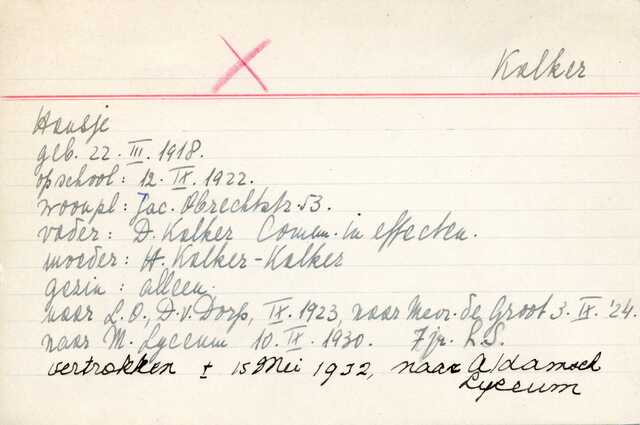 Kalker
Hansje
geb. 22. III. 1918.
op school: 12. IX. 1922.
woonpl: Jac. Obrechtstr. 53.
vader: D. Kalker Comm. in effecten.
moeder: H. Kalker-Kalker
gezin: alleen.
naar L.O., D. v. Dorp, IX. 1923, naar Mevr. de Groot 3. IX. '24.
naar M. Lyceum 10. IX. 1930. 7 jr. L.S.
vertrokken ± 15 Mei 1932, naar A/damsch
Lyceum